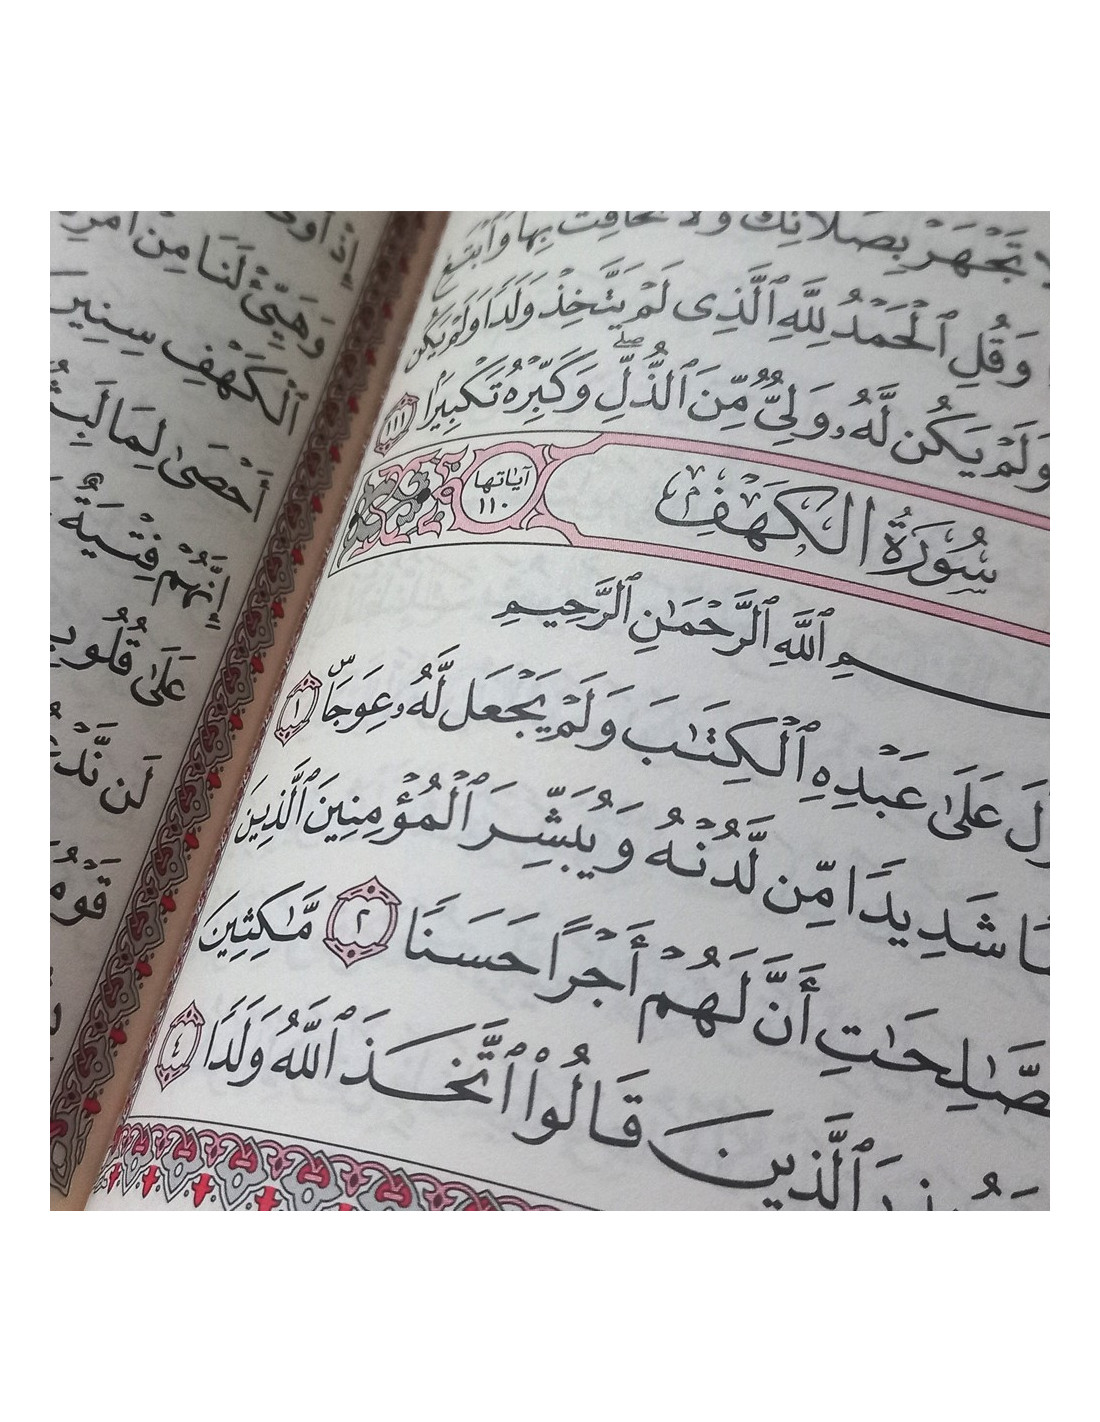 تَجْهَرْ بِصَلَاتِكَ وَلَا تُخَافِتْ بِهَا وَٱبْتَغِ
وَقُلِ ٱلْحَمْدُ لِلَّهِ ٱلَّذِى لَمْ يَتَّخِذْ وَلَدًا وَلَمْ يَكُن
وَلَمْ يَكُن لَّهُۥ وَلِىٌّ مِّنَ ٱلذُّلِّ ۖ وَكَبِّرْهُ تَكْبِيرًا ١١١
سُورَةُ الكَهْفِ آيَاتها ١١٠
ٱللَّهِ ٱلرَّحْمَٰنِ ٱلرَّحِيمِ
عَلَىٰ عَبْدِهِ ٱلْكِتَٰبَ وَلَمْ يَجْعَل لَّهُۥ عِوَجَا ۜ ١
شَدِيدًا مِّن لَّدُنْهُ وَيُبَشِّرَ ٱلْمُؤْمِنِينَ ٱلَّذِينَ
أَنَّ لَهُمْ أَجْرًا حَسَنًا ٢ مَّٰكِثِينَ
ٱلَّذِينَ قَالُوا۟ ٱتَّخَذَ ٱللَّهُ وَلَدًا ٤
وَهَيِّئْ لَنَا مِنْ أَمْرِ
ٱلْكَهْفِ سِنِينَ
أَحْصَىٰ لِمَا
إِنَّهُمْ فِتْيَةٌ
عَلَىٰ
لَن